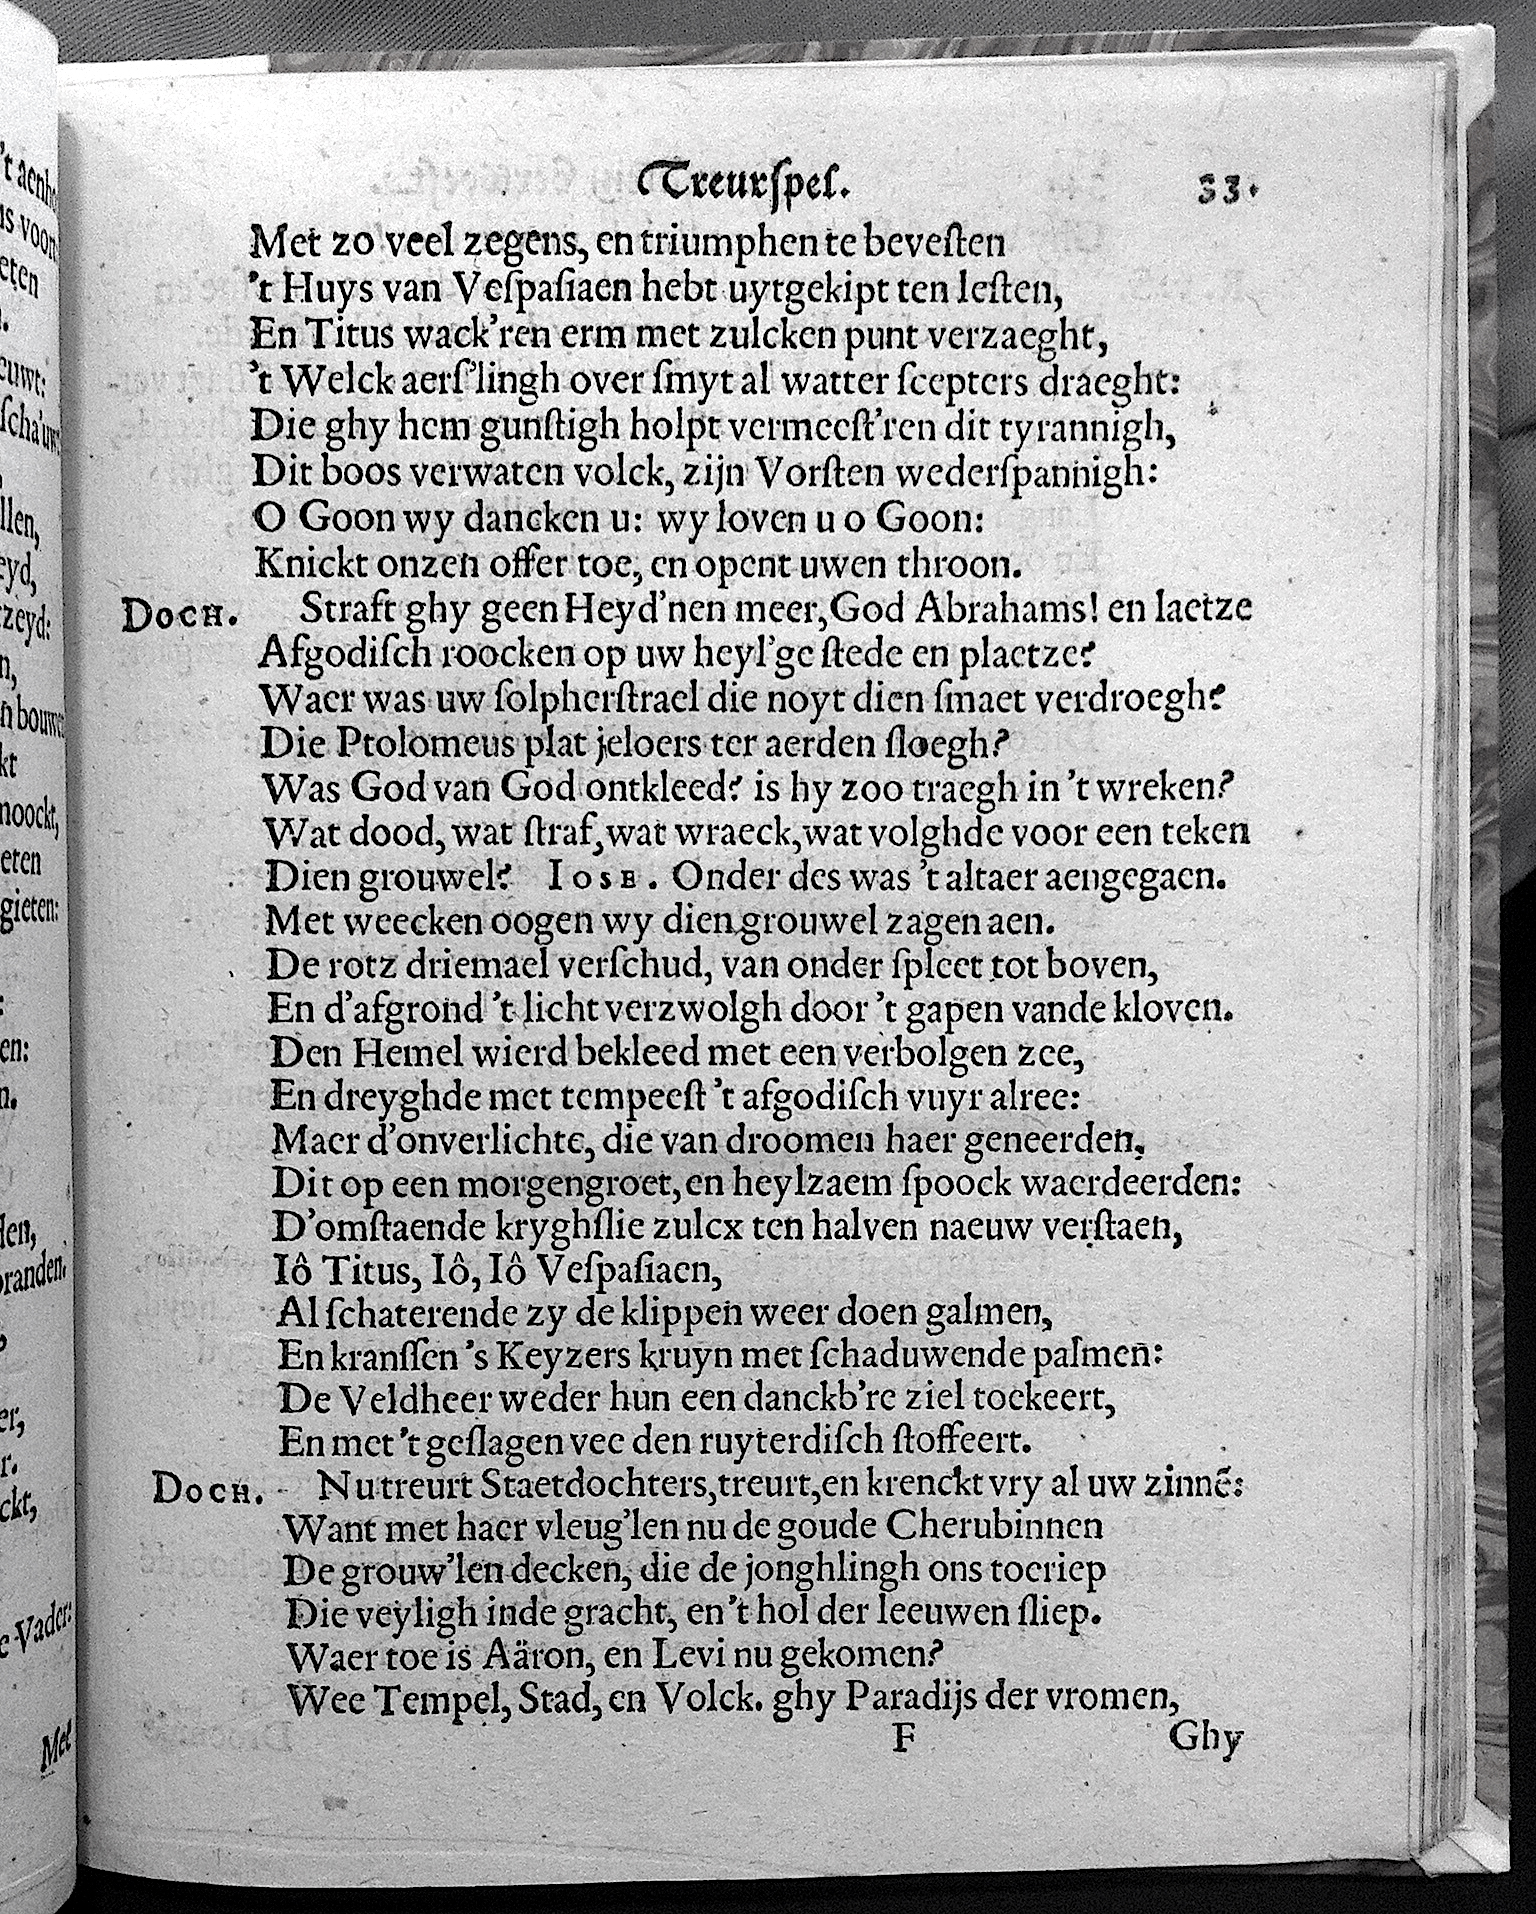 Treurſpel.
33.
Met zo veel zegens, en triumphen te beveſten
't Huys van Veſpaſiaen hebt uytgekipt ten leſten,
En Titus wack'ren erm met zulcken punt verzaeght,
't Welck aerſ'lingh over ſmyt al watter ſcepters draeght:
Die ghy hem gunſtigh holpt vermeeſt'ren dit tyrannigh,
Dit boos verwaten volck, zijn Vorſten wederſpannigh:
O Goon wy dancken u: wy loven u o Goon:
Knickt onzen offer toe, en opent uwen throon.
Doch. Straft ghy geen Heyd'nen meer, God Abrahams! en laetze
Afgodiſch roocken op uw heyl'ge ſtede en plaetze?
Waer was uw ſolpherſtrael die noyt dien ſmaet verdroegh?
Die Ptolomeus plat jeloers ter aerden ſloegh?
Was God van God ontkleed? is hy zoo traegh in 't wreken?
Wat dood, wat ſtraf, wat wraeck, wat volghde voor een teken
Dien grouwel? Iose. Onder des was 't altaer aengegaen.
Met weecken oogen wy dien grouwel zagen aen.
De rotz driemael verſchud, van onder ſpleet tot boven,
En d'afgrond 't licht verzwolgh door 't gapen vande kloven.
Den Hemel wierd bekleed met een verbolgen zee,
En dreyghde met tempeeſt 't afgodiſch vuyr alree:
Maer d'onverlichte, die van droomen haer geneerden,
Dit op een morgengroet, en heylzaem ſpoock waerdeerden:
D'omſtaende kryghſlie zulcx ten halven naeuw verſtaen,
Iô Titus, Iô, Iô Veſpaſiaen,
Al ſchaterende zy de klippen weer doen galmen,
En kranſſen 's Keyzers kruyn met ſchaduwende palmen:
De Veldheer weder hun een danckb're ziel toekeert,
En met 't geſlagen vee den ruyterdiſch ſtoffeert.
Doch. Nu treurt Staetdochters, treurt, en krenckt vry al uw zinnē:
Want met haer vleug'len nu de goude Cherubinnen
De grouw'len decken, die de jonghlingh ons toeriep
Die veyligh inde gracht, en 't hol der leeuwen ſliep.
Waer toe is Aäron, en Levi nu gekomen?
Wee Tempel, Stad, en Volck. ghy Paradijs der vromen,
F
Ghy